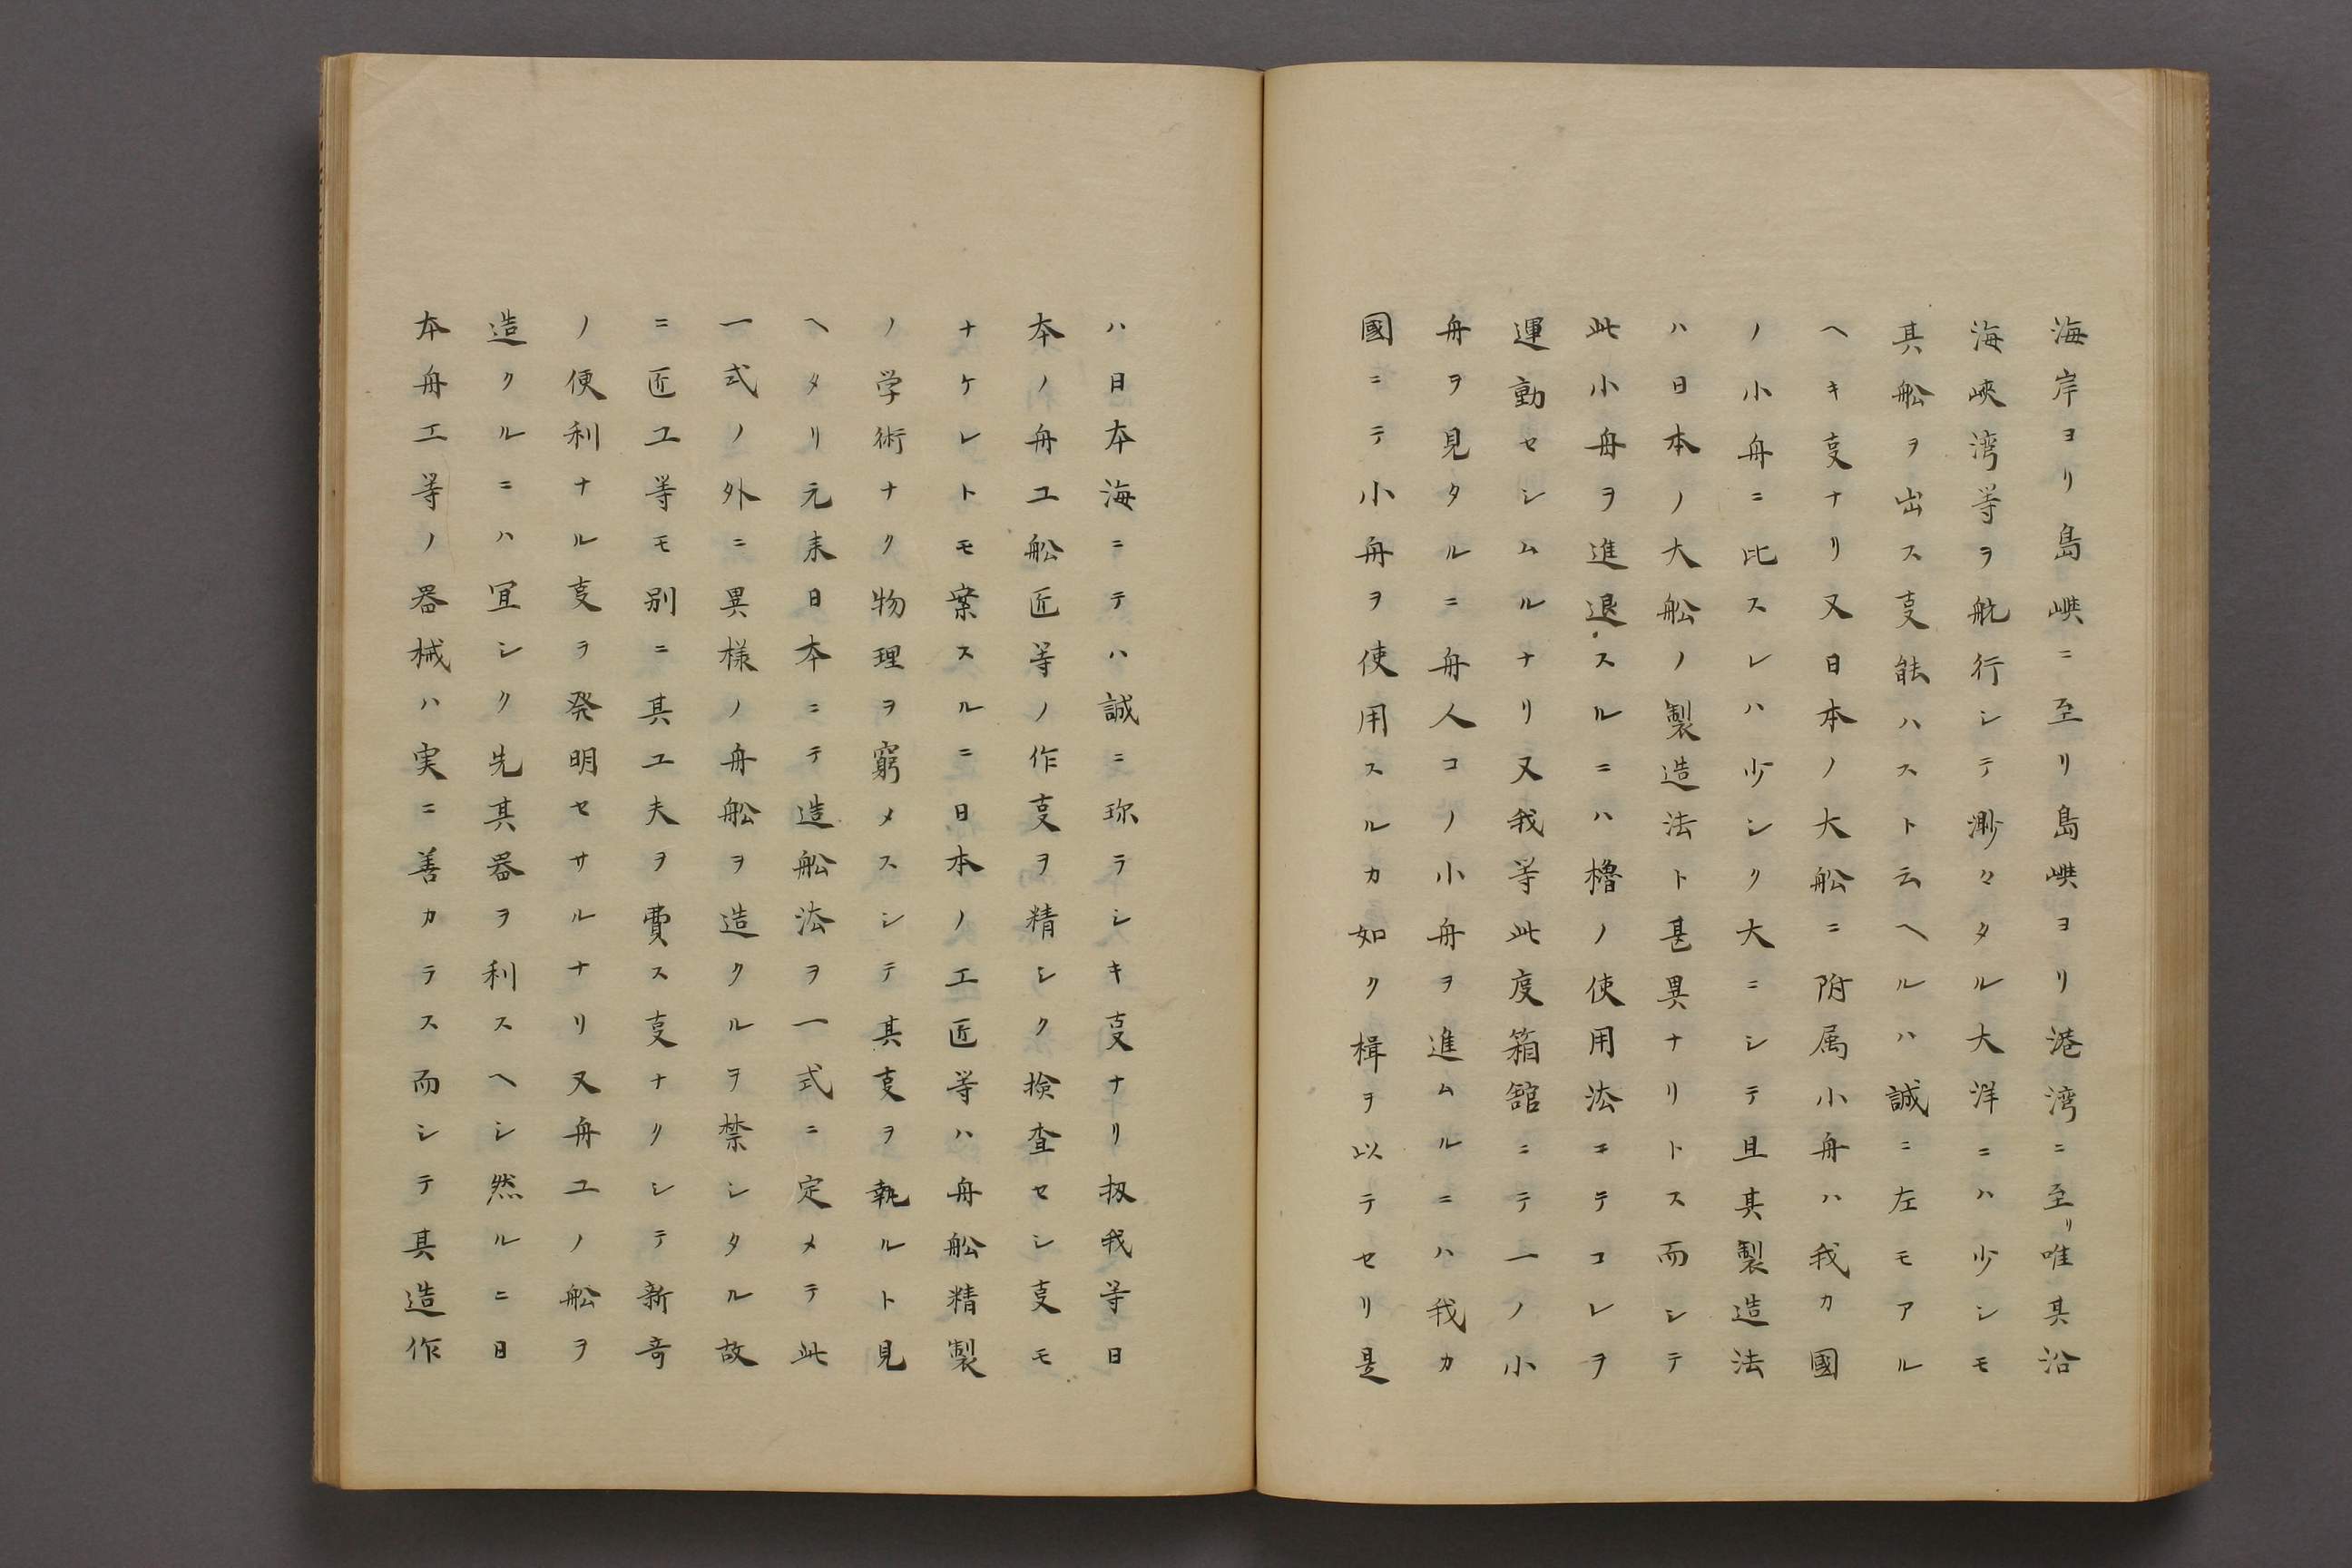 海岸ヨリ島嶼ニ至リ島嶼ヨリ港湾ニ至リ唯其沿
海峽湾等ヲ航行シテ渺々タル大洋ニハ少シモ
其舩ヲ出ス叓能ハストエヘルハ誠ニ左モアル
ヘキ叓ナリ又日本ノ大舩ニ附属小舟ハ我カ國
ノ小舟ニ比スレハ少シク大ニシテ且其製造法
ハ日本ノ大舩ノ製造法ト甚異ナリトス而シテ
此小舟ヲ進退スルニハ櫓ノ使用法ヰテコレヲ
運動セシムルナリ又我等此度箱舘ニテ一ノ小
舟ヲ見タルニ舟人コノ小舟ヲ進ムルニハ我カ
國ニテ小舟ヲ使用スルカ如ク楫ヲ以テセリ是
ハ日本海ニテハ誠ニ珎ラシキ叓ナリ扨我等日
本ノ舟工舩匠等ノ作叓ヲ精シク捡査セシ叓モ
ナケレトモ案スルニ日本ノ工匠等ハ舟舩精製
ノ学術ナク物理ヲ窮メスシテ其叓ヲ執ルト見
ヘタリ元来日本ニテ造舩法ヲ一式ニ定メテ此
一式ノ外ニ異様ノ舟舩ヲ造クルヲ禁シタル故
ニ匠工等モ別ニ其工夫ヲ費ス叓ナクシテ新竒
ノ便利ナル叓ヲ発明セサルナリ又舟工ノ舩ヲ
造クルニハ宜シク先其器ヲ利スヘシ然ルニ日
本舟工等ノ器械ハ実ニ善カラス而シテ其造作